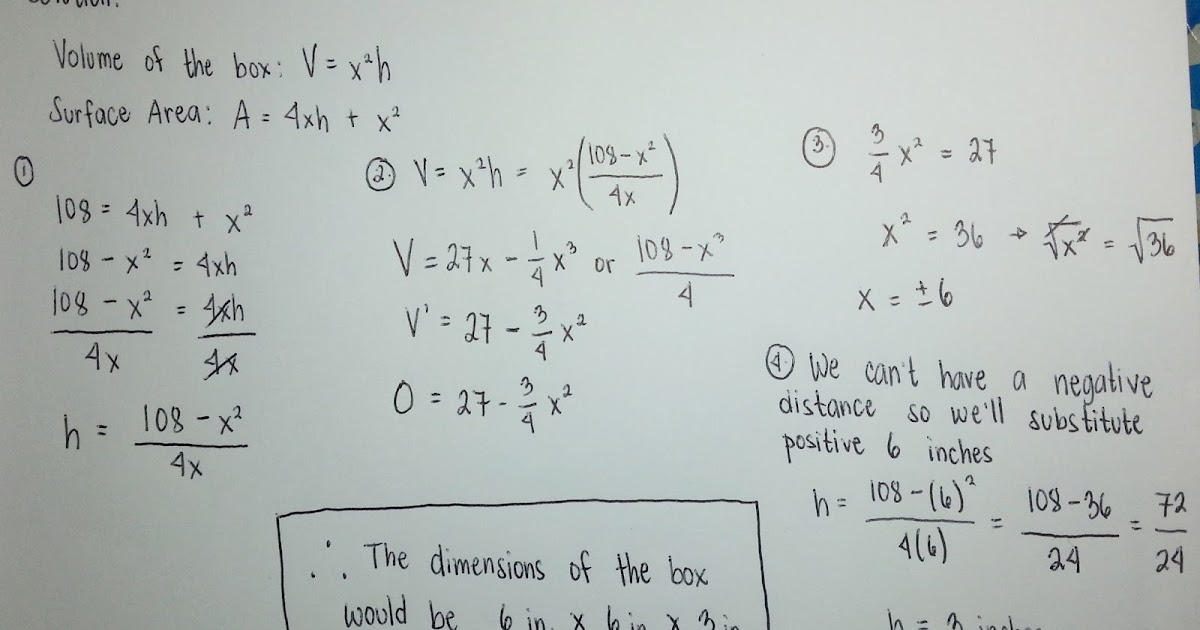 Solution:
Volume of the box: V = x²h
Surface Area: A = 4xh + x²
①
108 = 4xh + x²
108 - x² = 4xh
(108 - x²)/4x = 4xh/4x
h = (108 - x²)/4x
② V = x²h = x²((108 - x²)/4x)
V = 27x - 1/4 x³ or (108 - x³)/4
V' = 27 - 3/4 x²
0 = 27 - 3/4 x²
③ 3/4 x² = 27
x² = 36 → √x² = √36
x = ±6
④ We can't have a negative
distance so we'll substitute
positive 6 inches
h = (108 - (6)²)/4(6) = (108 - 36)/24 = 72/24
h = 3 inches
∴ The dimensions of the box
would be 6 in. x 6 in x 3 in